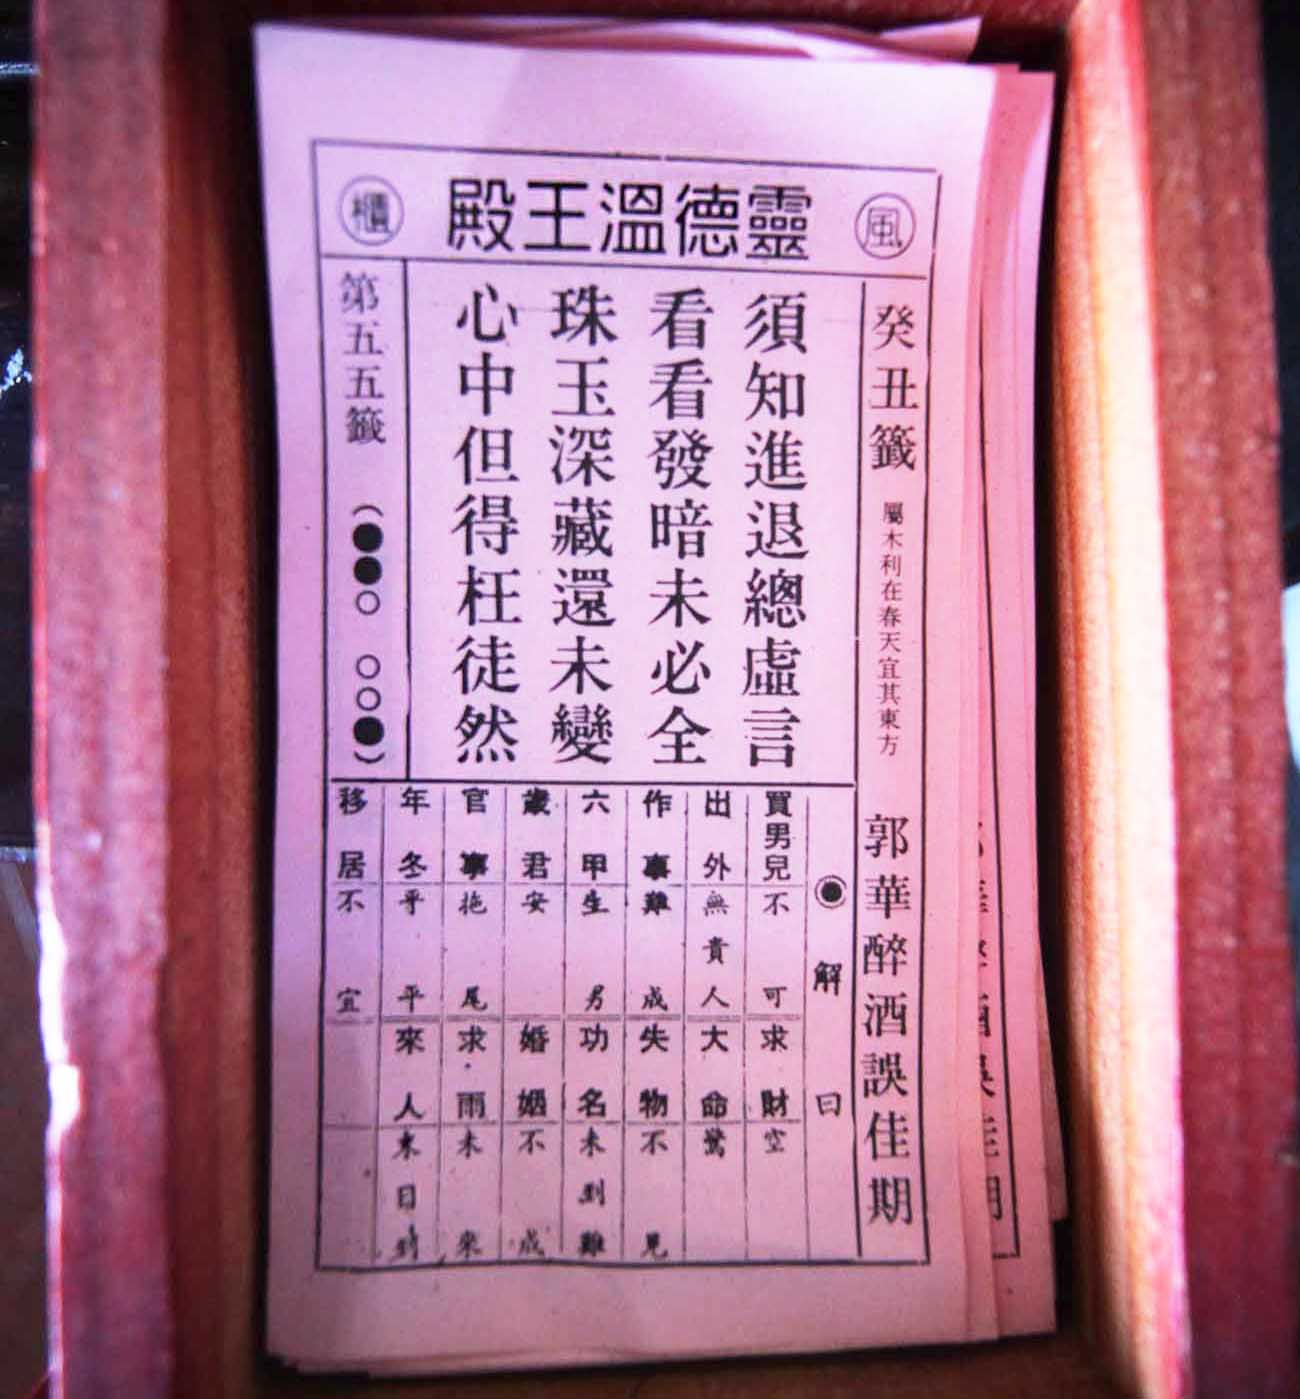 風
靈德溫王殿
櫃
癸丑籤 屬木利在春天宜其東方 郭華醉酒誤佳期
須知進退總虛言
看看發暗未必全
珠玉深藏還未變
心中但得枉徒然
第五五籤 (●●○ ○○●)
解曰
買男兒不可 求財空
出外無貴人 大命驚
作事難成 失物不見
六甲生男 功名未到難
歲君安 婚姻不成
官事拖尾 求雨未來
年冬平平 來人來日到
移居不宜